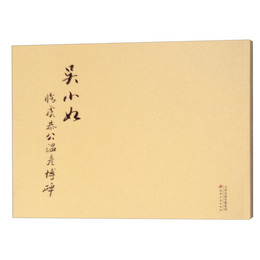 吴小如
临虞恭公温彦博碑